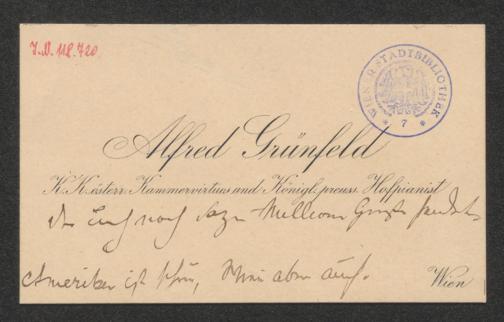 J.N. 118.720
WIENER STADTBIBLIOTHEK
* 7 *
Alfred Grünfeld
K.K. österr. Kammervirtuos und Königl. preuss. Hofpianist
noch Million Grüße sendet.
Amerika ist schön, Wien aber auch.
Wien